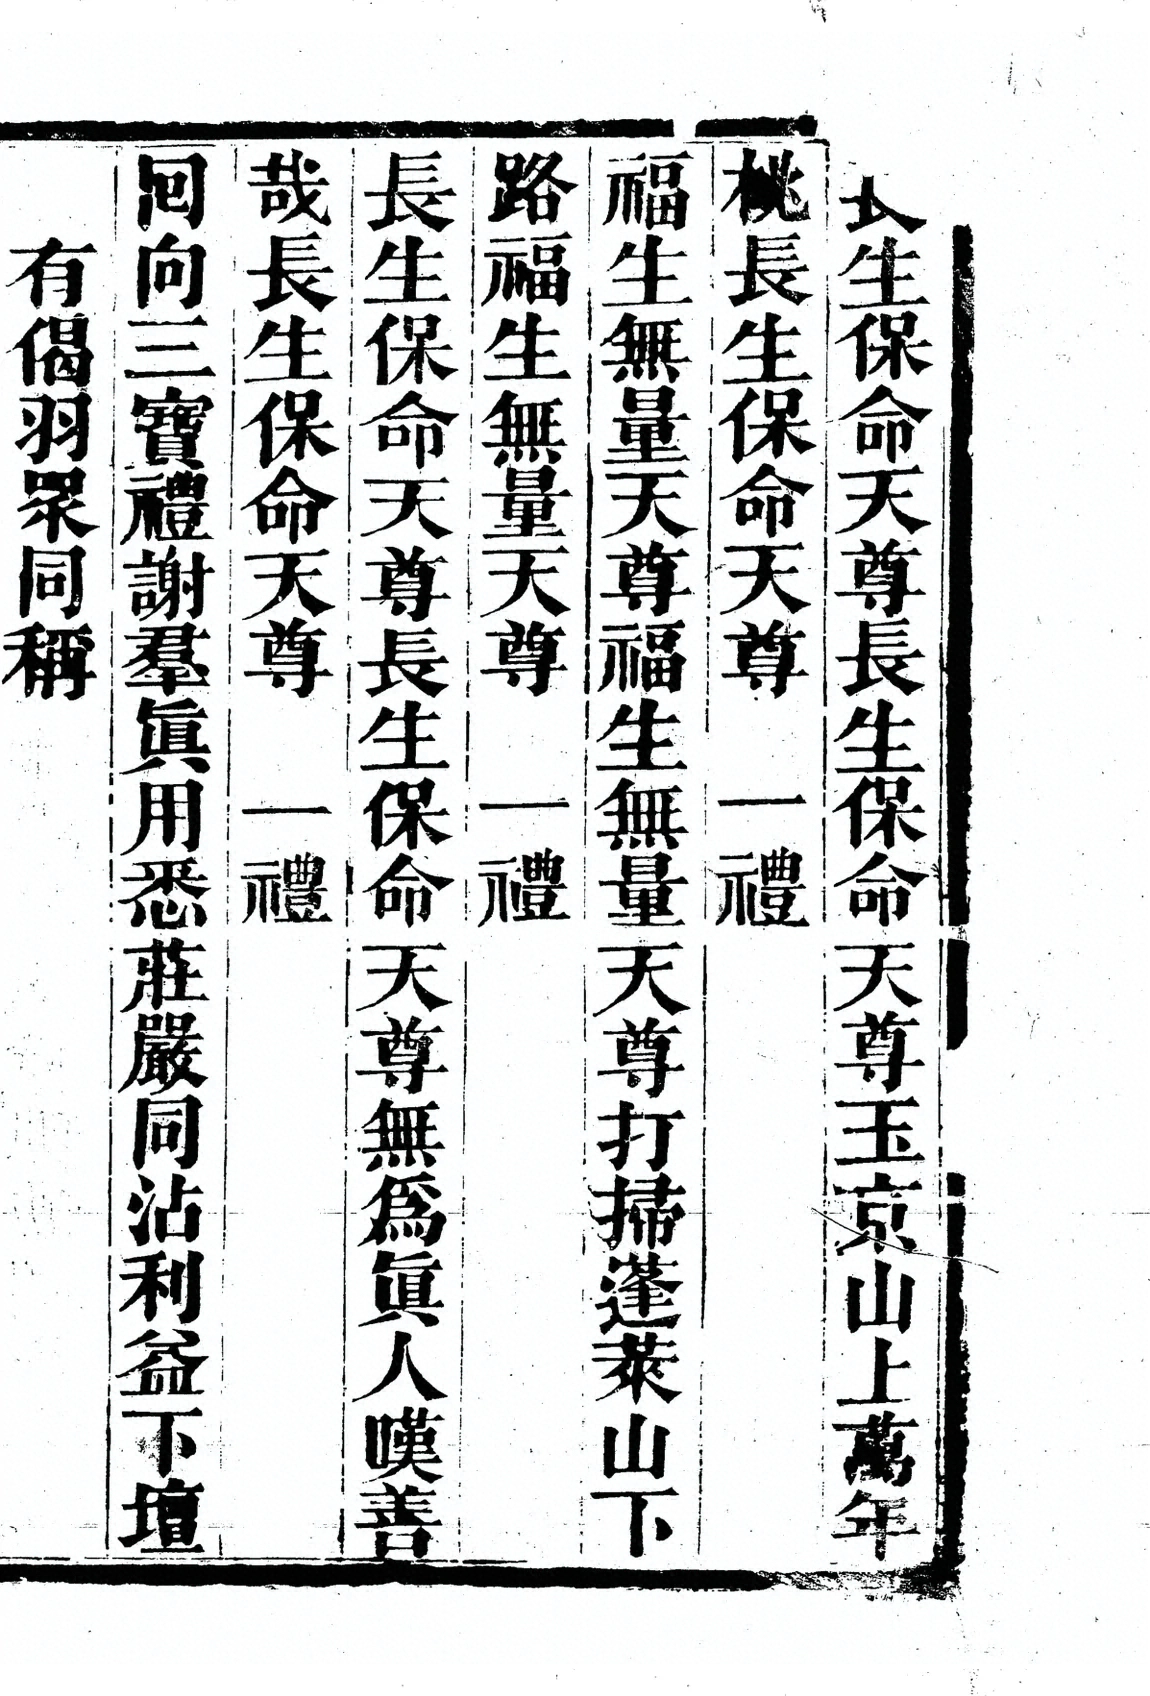 長生保命天尊長生保命天尊玉京山上萬年
桃長生保命天尊　一禮
福生無量天尊福生無量天尊打掃蓬萊山下
路福生無量天尊　一禮
長生保命天尊長生保命天尊無爲眞人嘆善
哉長生保命天尊　一禮
囘向三寶禮謝羣眞用悉莊嚴同沾利益下壇
有偈羽眾同稱